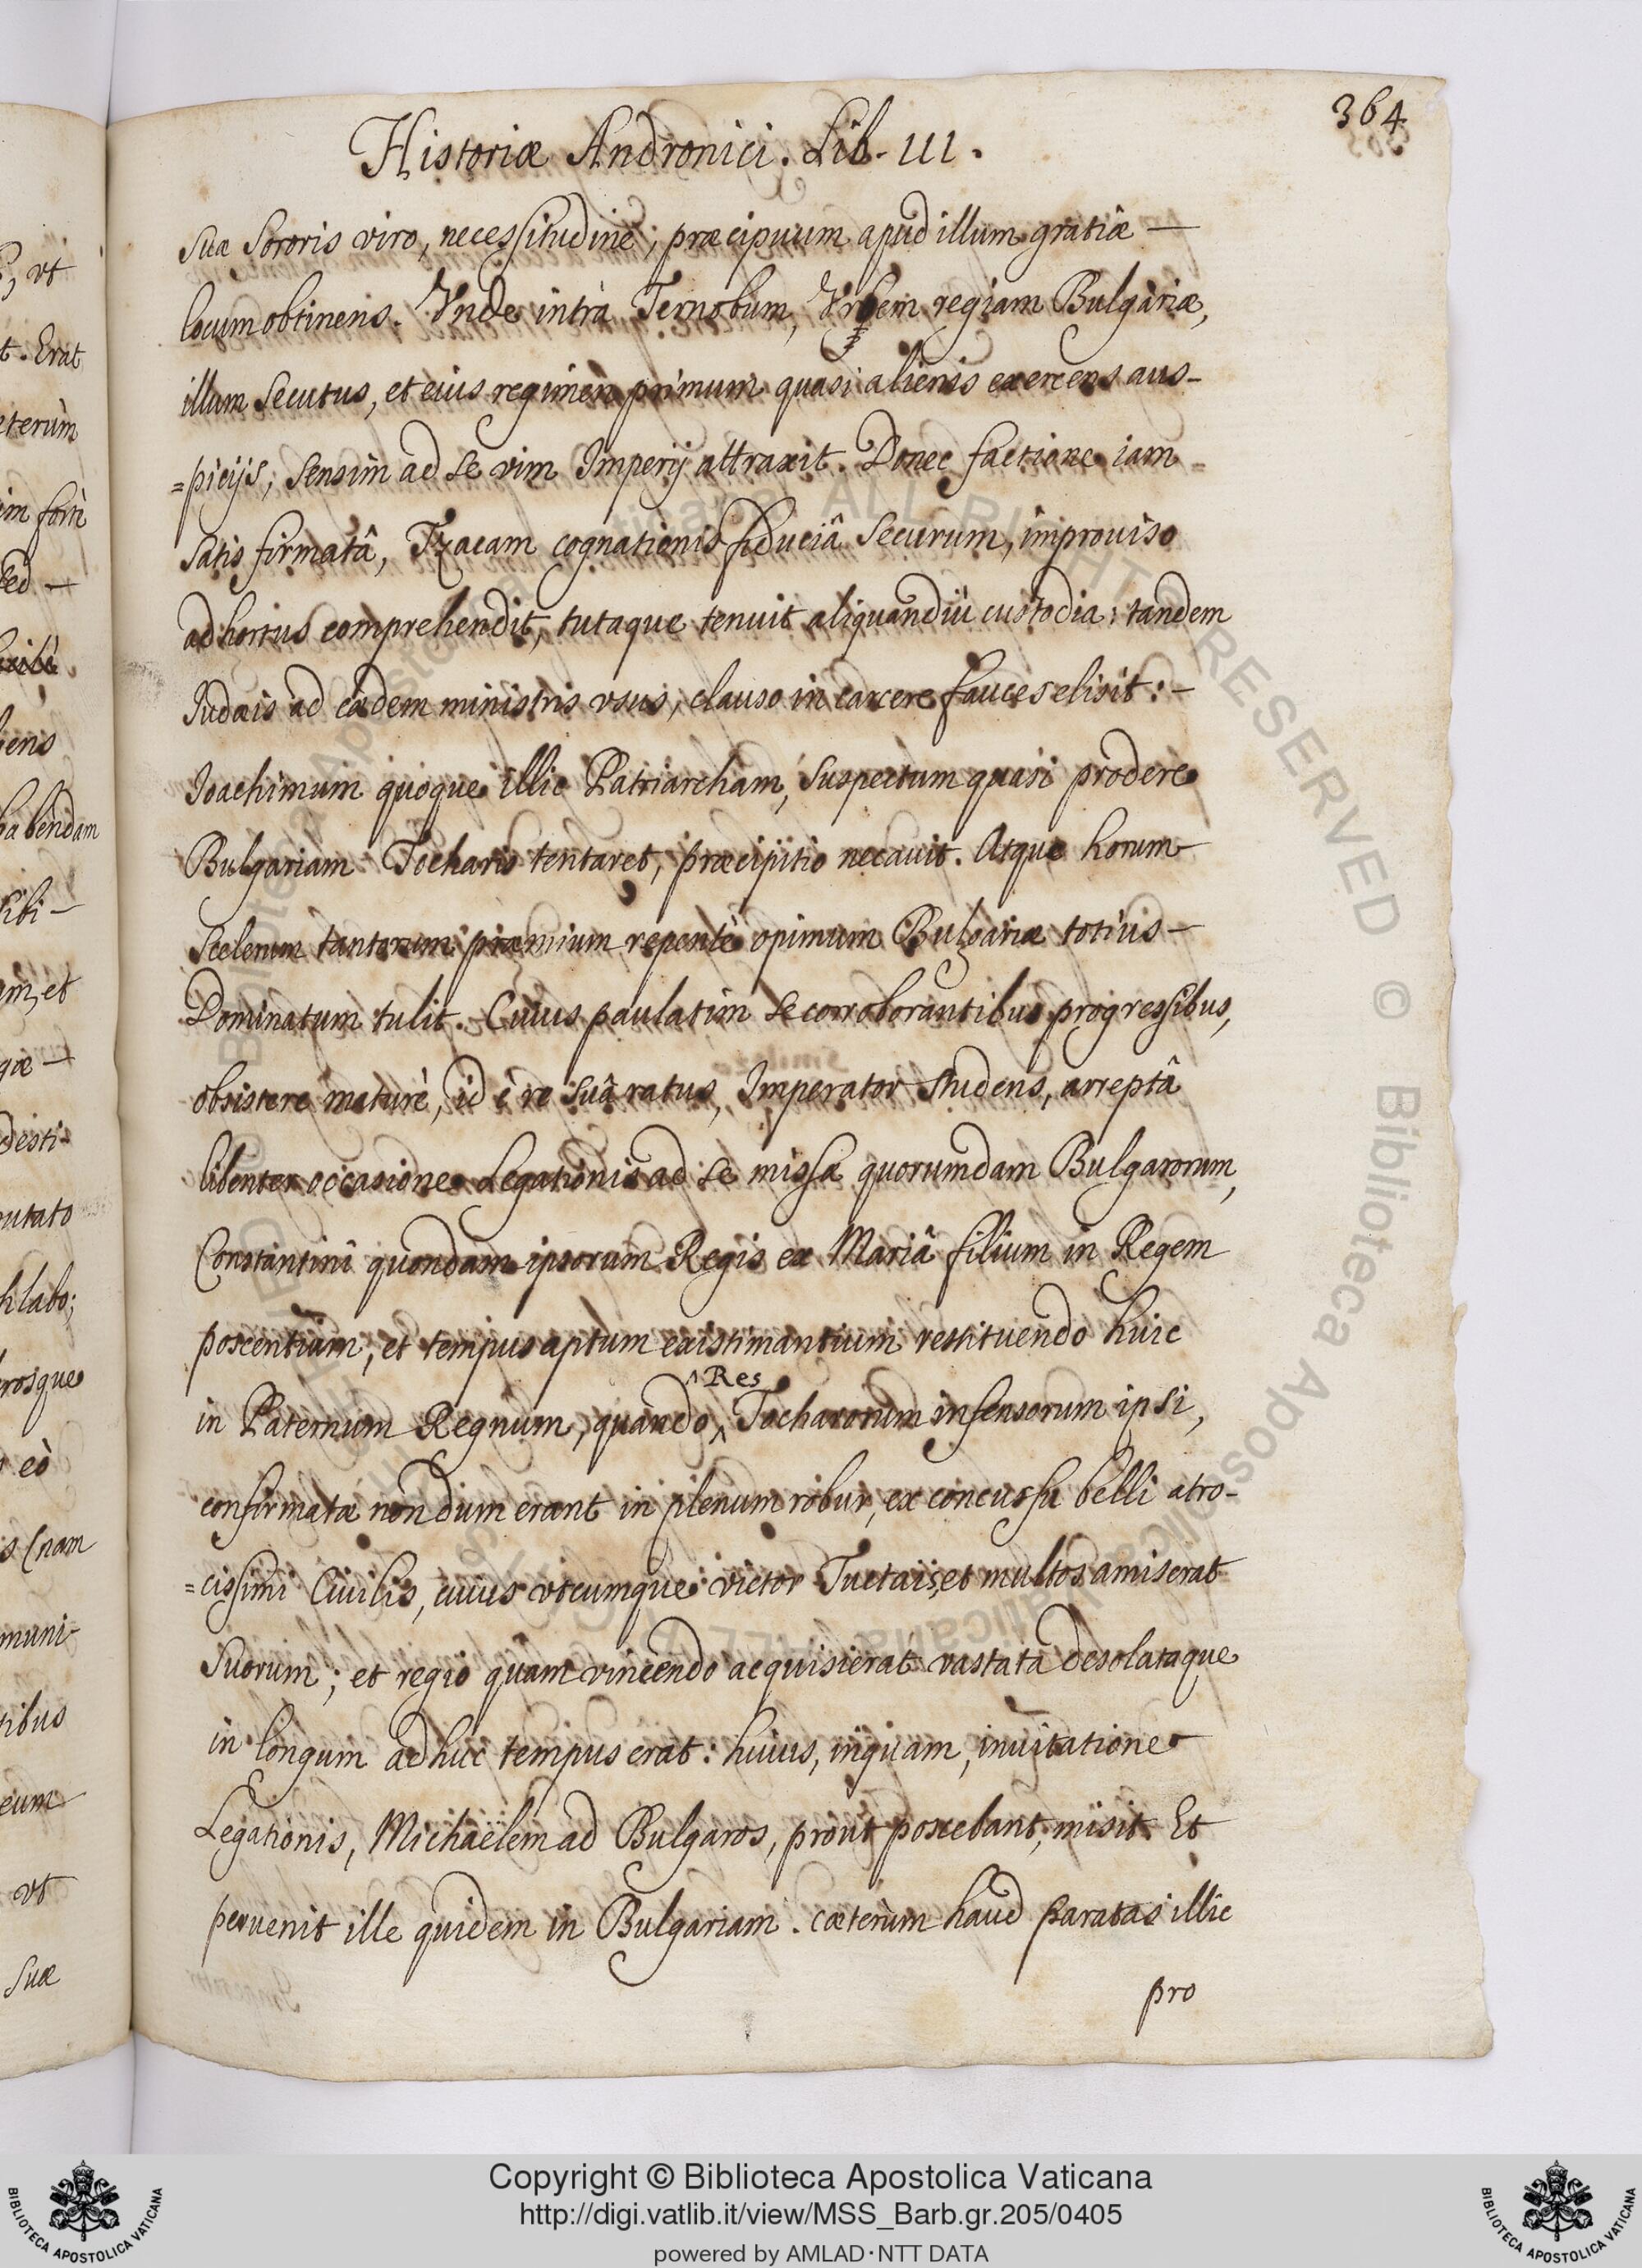 364
Historiæ Andronici. Lib. III.
suæ sororis viro, necessitudine, præcipuum apud illum gratiæ —
locum obtinens. Vnde intrà Ternobum, Vrbem regiam Bulgariæ,
illum secutus, et eius regimen primum quasi alienis exercens aus-
=picijs; sensim ad se vim Imperij attraxit. Donec factione iam
satis firmatâ, Tzacam cognationis fiduciâ securum, improuiso
adhortus comprehendit, tutaque tenuit aliquandiù custodia: tandem
Judæis ad cædem ministris vsus, clauso in carcere fauces elisit: -
Joachimum quoque illic Patriarcham, suspectum quasi prodere
Bulgariam Tocharis tentaret, præcipitio necauit. Atque horum
Scelerum tantorum præmium repentè opimum Bulgariæ totius —
Dominatum tulit. Cuius paulatim se corroborantibus progressibus,
obsistere maturè, id è re suâ ratus, Imperator studens, arreptâ
libenter occasione Legationis ad se missæ quorumdam Bulgarorum,
Constantini quondam ipsorum Regis ex Mariâ filium in Regem
poscentium, et tempus aptum existimantium restituendo huic
^ Res
in Paternum Regnum, quando ^ Tocharorum infensorum ipsi,
confirmatæ nondum erant in plenum robur, ex concussu belli atro-
=cissimi Ciuilis, cuius vtcumque victor Tuctais, et multos amiserat
suorum; et regio quam vincendo acquisierat vastata desolataque
in longum adhuc tempus erat: huius, inquam, inuitatione
Legationis, Michaëlem ad Bulgaros, prout poscebant, misit. Et
peruenit ille quidem in Bulgariam. cæterùm haud paratas illic
pro
vt
t. Erat
eterùm
hens
habendam
sibi —
im, et
desti-
utato
hlabo;
rosque
eò
s (nam
muni-
ribus
eum
vt
suæ
Copyright © Biblioteca Apostolica Vaticana
http://digi.vatlib.it/view/MSS_Barb.gr.205/0405
powered by AMLAD·NTT DATA
BIBLIOTECA APOSTOLICA VATICANA
BIBLIOTECA APOSTOLICA VATICANA